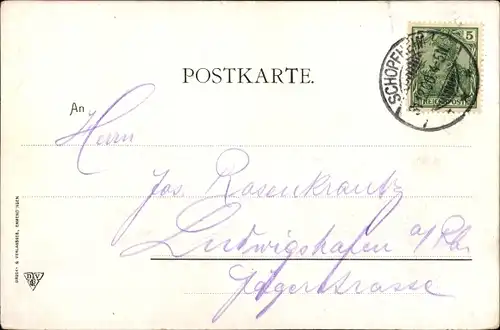 5
SCHOPFHEIM
REICHSPOST
POSTKARTE.
An
Herrn
Jos. Rosenkrantz
Ludwigshafen a/Rh
Jägerstrasse
DRUCK & VERLAG